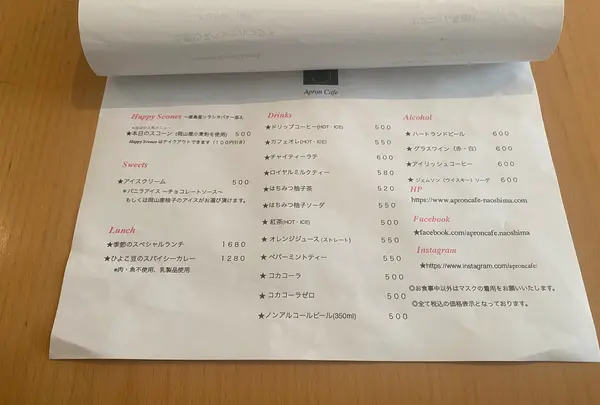 Apron Cafe
Happy Scones ～鹿島産ソラシオバター添え
★本日のスコーン(岡山産小麦粉を使用) 500
Happy Scones はテイクアウトできます(100円引き)
Sweets
★アイスクリーム 500
*バニラアイス ～チョコレートソース～
もしくは岡山産柚子のアイスがお選び頂けます。
Lunch
★季節のスペシャルランチ 1680
★ひよこ豆のスパイシーカレー 1280
*肉・魚不使用、乳製品使用
Drinks
★ドリップコーヒー(HOT・ICE) 500
★カフェオレ(HOT・ICE) 550
★チャイティーラテ 600
★ロイヤルミルクティー 580
★はちみつ柚子茶 520
★はちみつ柚子ソーダ 550
★紅茶(HOT・ICE) 500
★オレンジジュース (ストレート) 550
★ペパーミントティー 550
★コカコーラ 500
★コカコーラゼロ 500
★ノンアルコールビール(350ml) 500
Alcohol
★ハートランドビール 600
★グラスワイン (赤・白) 600
★アイリッシュコーヒー 600
★ジェムソン (ウイスキー) ソーダ 600
HP
https://www.aproncafe-naoshima.com
Facebook
★facebook.com/aproncafe.naoshima
Instagram
★https://www.instagram.com/aproncafe/
◎お食事中以外はマスクの着用をお願いいたします。
◎全て税込の価格表示となっております。